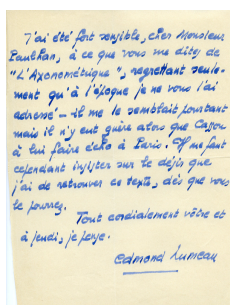 J'ai été fort sensible, cher Monsieur
Paulhan, à ce que vous me dites de
"L'Axonométrique", regrettant seule-
ment qu'à l'époque je ne vous l'ai
adressé - il me le semblait pourtant
mais il n'y eut guère alors que Cassou
à lui faire écho à Paris. Il me faut
cependant insister sur le désir que
j'ai de retrouver ce texte, dès que vous
le pourrez.
Tout cordialement vôtre et
à jeudi, je pense.
Edmond Humeau